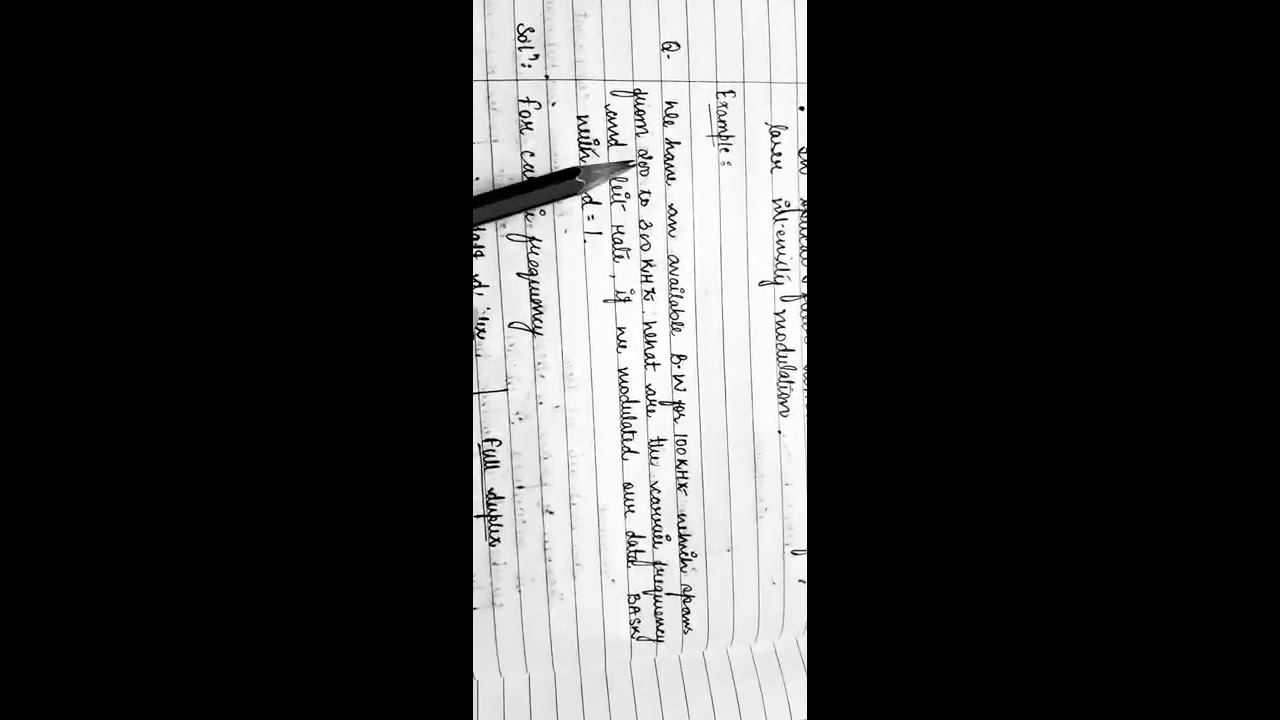 laser intensity modulation.
Example:
Q. We have an available B.W for 100 KHz which spans
from 200 to 300 KHz. What are the carrier frequency
and bit rate, if we modulated our data BASK
with d = 1.
Soln: For frequency
Full duplex